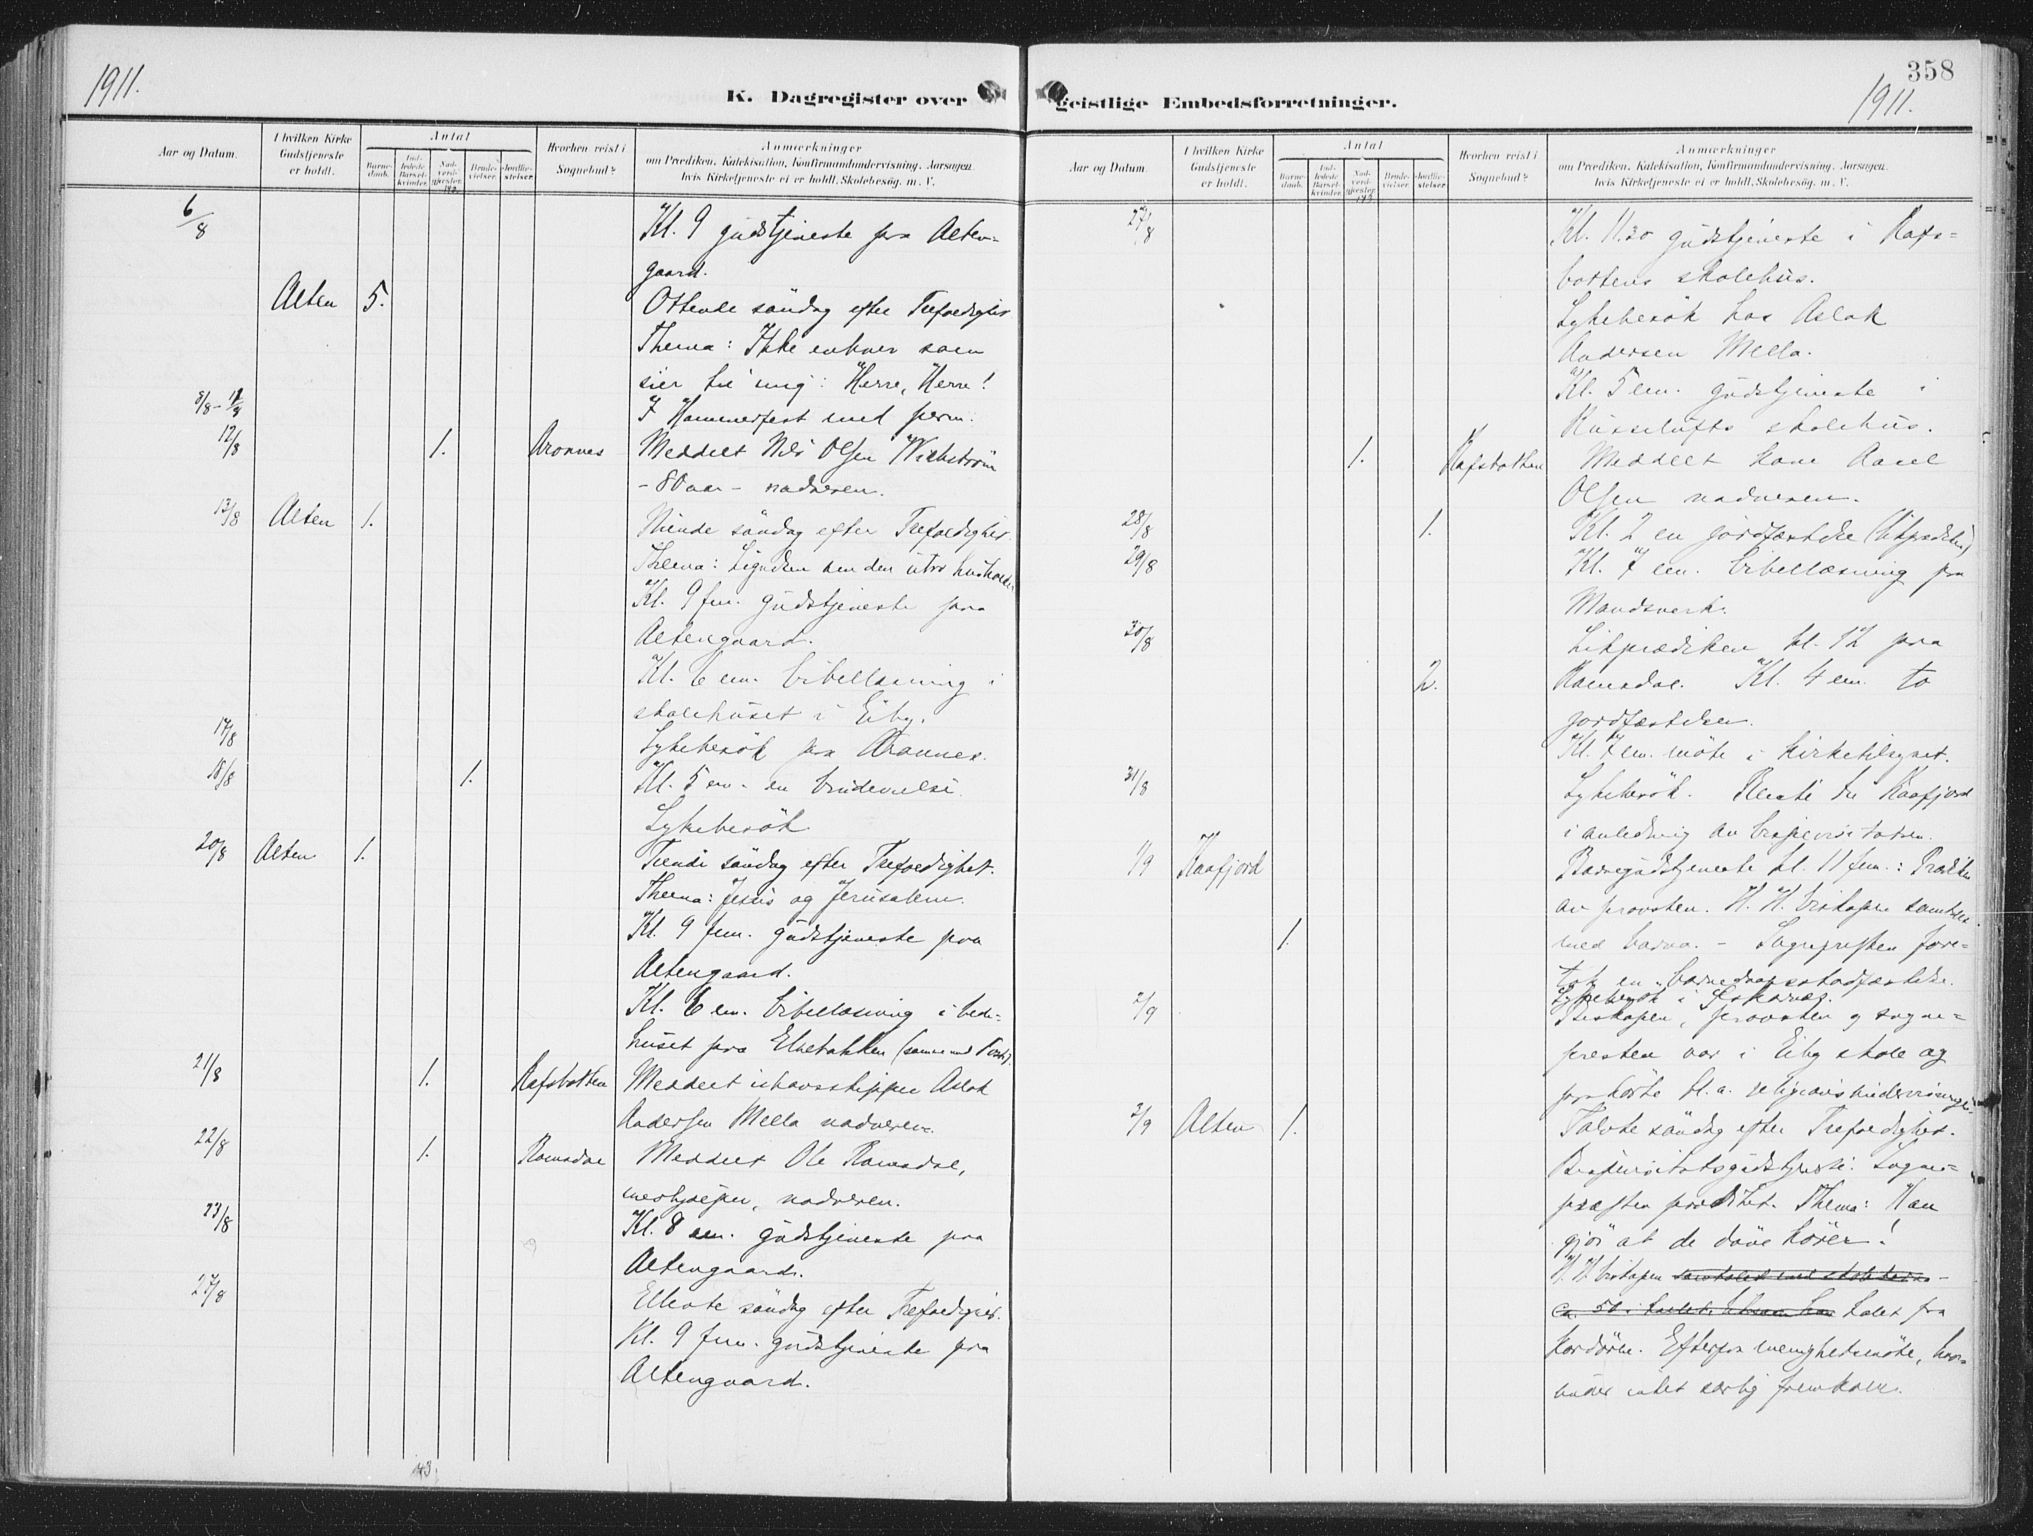 1911.
K. Dagregister over
Aar og Datum.
I hvilken Kirke Gudstjeneste er holdt.
Antal
Barnedaab.
Indledede Barselkvinder.
Nadverdgjester.
Brudevielser.
Jordfæstelser.
Hvorhen reist i Sognebud?
Anmærkninger
om Prædiken, Katekisation, Konfirmandundervisning, Aarsagen,
hvis Kirketjeneste ei er holdt, Skolebesøg m. V.
6/8 Kl. 9 gudstjeneste paa Alten-
gaard.
Alten 5. Ottende søndag efter Trefoldighet
Thema: Ikke enhver som
sier til mig: Herre, Herre!
8/8 - 11/8 I Hammerfest med perm.
12/8 1. Aronnes Meddelt Nils Olsen Wickstrøm
- 80 aar - nadveren.
13/8 Alten 1. Niende søndag efter Trefoldighet.
Thema: Lignelsen om den utro husholder
Kl. 9 fm. gudstjeneste paa
Altengaard.
Kl. 6 em. bibellæsning i
skolehuset i Eiby.
17/8 Sykebesøk paa Aronnes.
18/8 1. Kl. 5 em. en brudevielse.
Sykebesøk.
20/8 Alten 1. Tiende søndag efter Trefoldighet.
Thema: Jesus og Jerusalem.
Kl. 9 fm. gudstjeneste paa
Altengaard.
Kl. 6 em. bibellæsning i bede-
huset paa Elvebakken
21/8 1. Rafsbotten Meddelt ishavsskipper Aslak
Andersen Mella nadveren.
22/8 1. Romsdal Meddelt Ole Romsdal,
nadveren.
23/8 Kl. 8 em. gudstjeneste paa
Altengaard.
27/8 Ellevte søndag efter Trefoldighet.
Kl. 9 fm. gudstjeneste paa
Altengaard.
43
358
1911.
geistlige Embedsforretninger.
Aar og Datum.
I hvilken Kirke Gudstjeneste er holdt.
Antal
Barnedaab.
Indledede Barselkvinder.
Nadverdgjester.
Brudevielser.
Jordfæstelser.
Hvorhen reist i Sognebud?
Anmærkninger
om Prædiken, Katekisation, Konfirmandundervisning, Aarsagen,
hvis Kirketjeneste ei er holdt, Skolebesøg m. V.
27/8 Kl. 11.30 gudstjeneste i Rafs-
bottens skolehus.
Sykebesøk hos Aslak
Andersen Mella.
Kl. 5 em. gudstjeneste i
Russelufts skolehus.
1. Rafsbotten Meddelt kone
Olsen nadveren.
28/8 1. Kl. 2 en jordfæstelse (likprædiken)
29/8 Kl. 7 em. bibellæsning paa
Mandsverk.
30/8 Likprædiken kl. 12 paa
2. Romsdal. Kl. 4 em. to
jordfæstelser.
Kl. 7 em. møte i kirketilsynet.
31/8 Sykebesøk. Reiste til Kaafjord
i anledning av bispevisitatsen.
1/9 Kaafjord Barnegudstjeneste kl. 11 fm.: Prædiken
av provsten. H. H. biskopen samtalte
1. med barna. - Sognepresten fore-
tok en barnedaapsstadfæstelse.
2/9 Sykebesøk i
Biskopen, provsten og sogne-
presten var i Eiby skole og
paahørte bl. a. religionsundervisningen.
3/9 Alten 1. Tolvte søndag efter Trefoldighet.
Bispevisitatsgudstjeneste. Sogne-
presten prædiket. Thema: Han
gjør at de døve hører!
H. H. biskopen samtalet med
ca. 50 talet fra
kordøren. Efterpaa menighetsmøte, hvor-
under intet særlig fremkom.